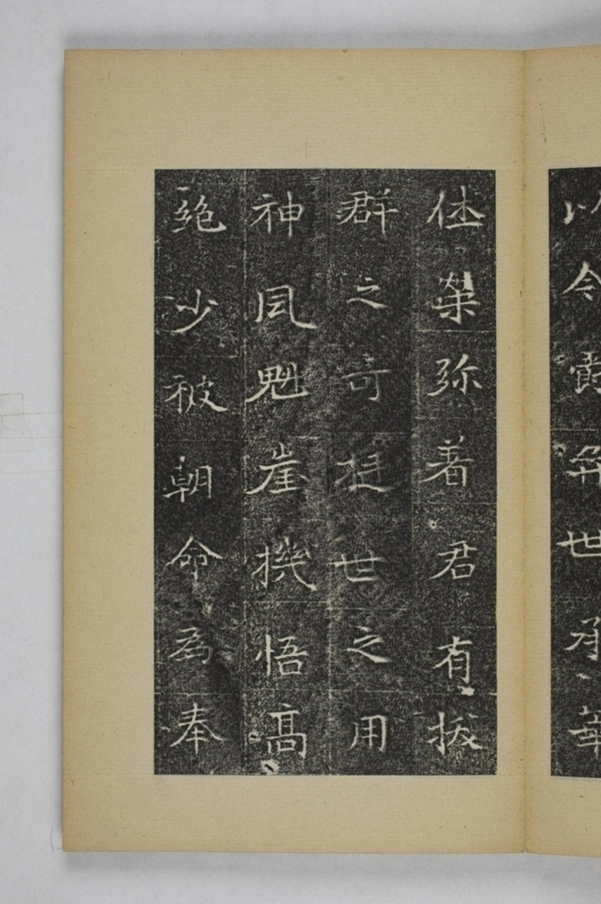 以令爵世承華
仕榮弥着君有拔
群之奇挺世之用
神風魁崖機悟高
絶少被朝命為奉